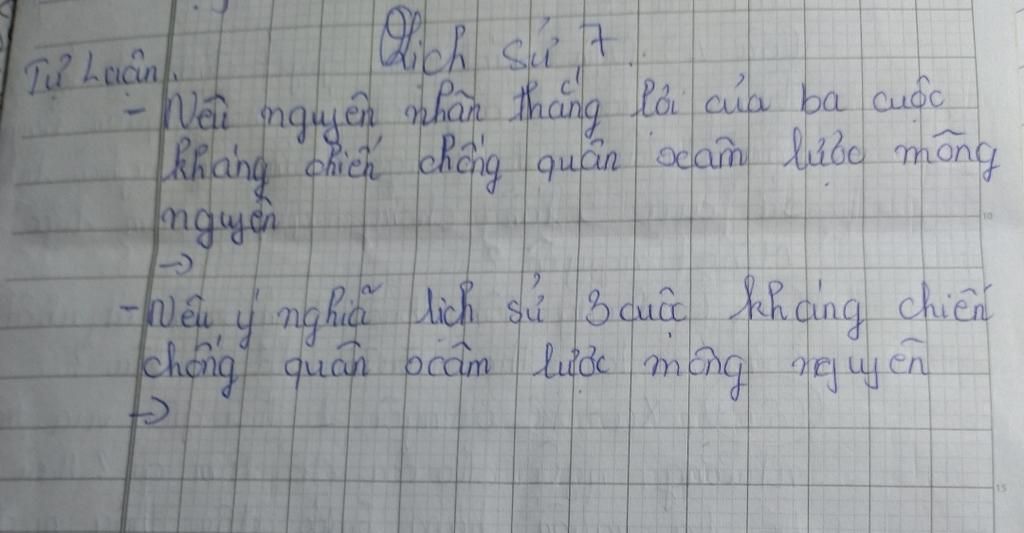 Lịch sử 7.
Tự Luận.
- Nêu nguyên nhân thắng lợi của ba cuộc
kháng chiến chống quân xcâm lược mông
nguyên
→
- Nêu ý nghĩa lịch sử 3 cuộc kháng chiến
chống quân xcâm lược mông nguyên
→
10
15